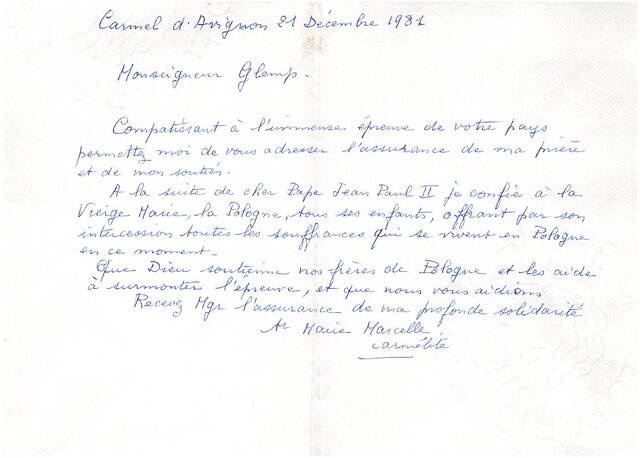 Carmel d'Avignon 21 Décembre 1981
Monseigneur Glemp.
Compatissant à l'immense épreuve de votre pays
permettez moi de vous adresser l'assurance de ma prière
et de mon soutien.
A la suite de cher Pape Jean Paul II je confie à la
Vierge Marie, la Pologne, tous ses enfants, offrant par son
intercession toutes les souffrances qui se vivent en Pologne
en ce moment.
Que Dieu soutienne nos frères de Pologne et les aide
à surmonter l'épreuve, et que nous vous aidions
Recevez Mgr l'assurance de ma profonde solidarité
Marie Marcelle
carmélite